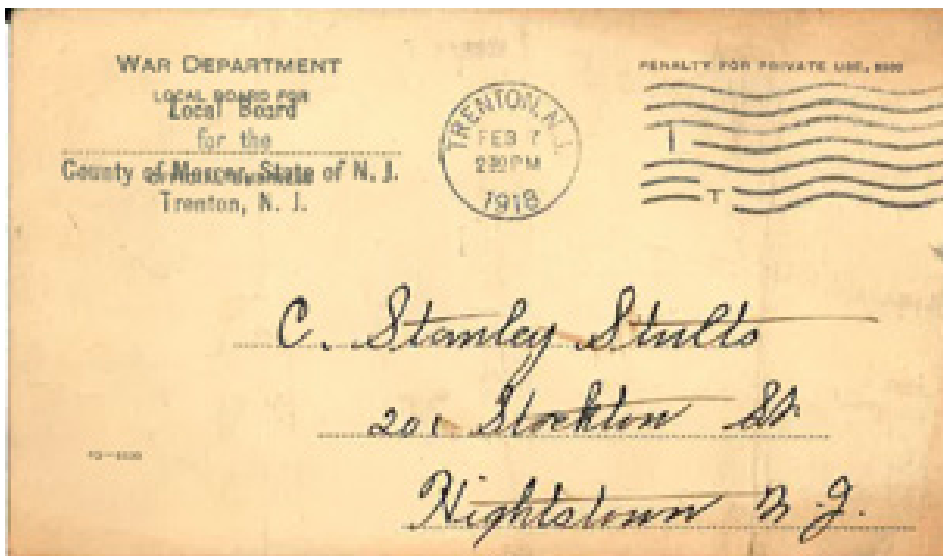 WAR DEPARTMENT
LOCAL BOARD FOR
Local Board
for the
County of Mercer, State of N. J.
Trenton, N. J.
TRENTON, N.J.
FEB 7
1918
PENALTY FOR PRIVATE USE, $300
C. Stanley Stults
201 Stockton St
Hightstown N. J.